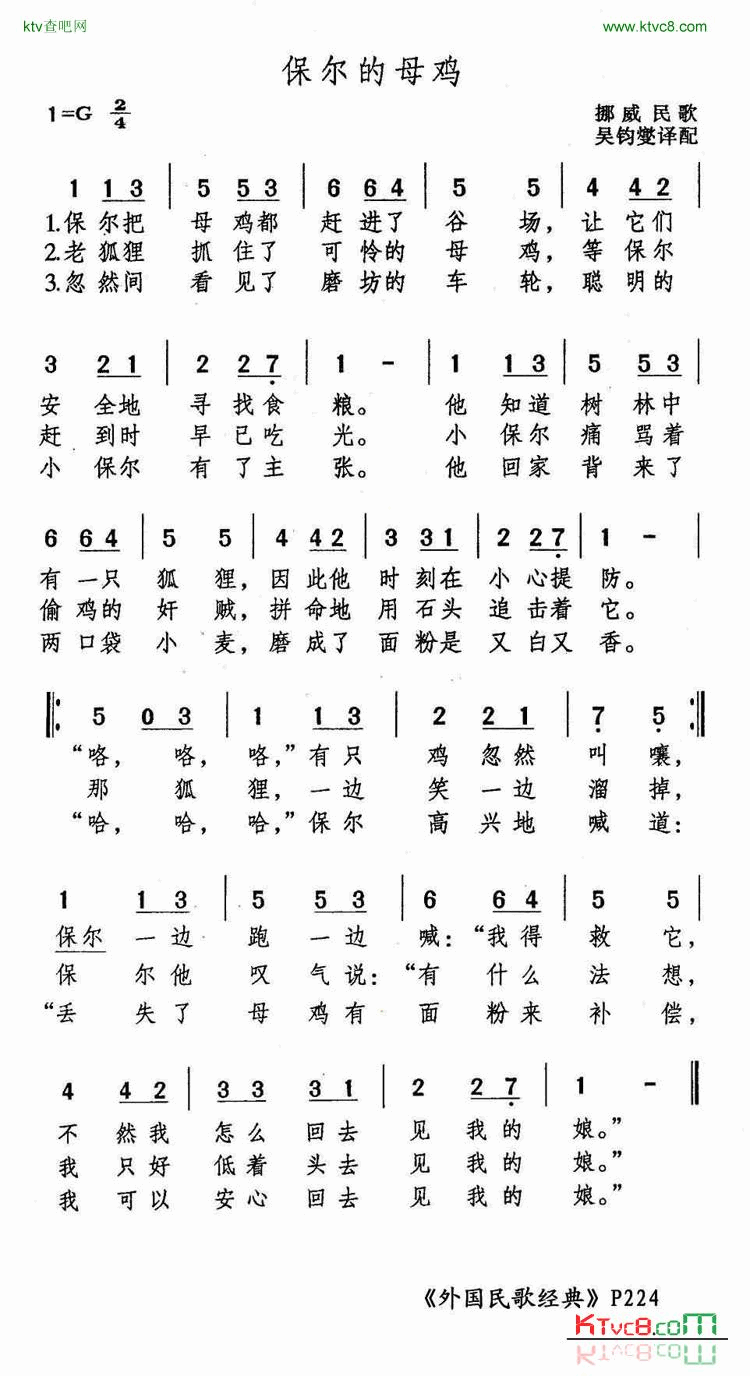 ktv查吧网
www.ktvc8.com
保尔的母鸡
1=G 2/4
挪威民歌
吴钧燮译配
1 1 3 | 5 5 3 | 6 6 4 | 5 5 | 4 4 2 |
1.保尔把 母鸡都 赶进了 谷场，让它们
2.老狐狸 抓住了 可怜的 母鸡，等保尔
3.忽然间 看见了 磨坊的 车轮，聪明的
3 2 1 | 2 2 7̣ | 1 - | 1 1 3 | 5 5 3 |
安全地 寻找食粮。 他知道树林中
赶到时 早已吃光。 小保尔痛骂着
小保尔 有了主张。 他回家背来了
6 6 4 | 5 5 | 4 4 2 | 3 3 1 | 2 2 7̣ | 1 - |
有一只狐狸，因此他时刻在小心提防。
偷鸡的奸贼，拼命地用石头追击着它。
两口袋小麦，磨成了面粉是又白又香。
‖: 5 0 3 | 1 1 3 | 2 2 1 | 7̣ 5̣ :‖
“咯，咯，咯，”有只鸡忽然叫嚷，
那狐狸，一边笑一边溜掉，
“哈，哈，哈，”保尔高兴地喊道：
1 1 3 | 5 5 3 | 6 6 4 | 5 5 |
保尔一边跑一边喊：“我得救它，
保尔他叹气说：“有什么法想，
“丢失了母鸡有面粉来补偿，
4 4 2 | 3 3 3 1 | 2 2 7̣ | 1 - ‖
不然我怎么回去见我的娘。”
我只好低着头去见我的娘。”
我可以安心回去见我的娘。”
《外国民歌经典》P224
KTvc8.com